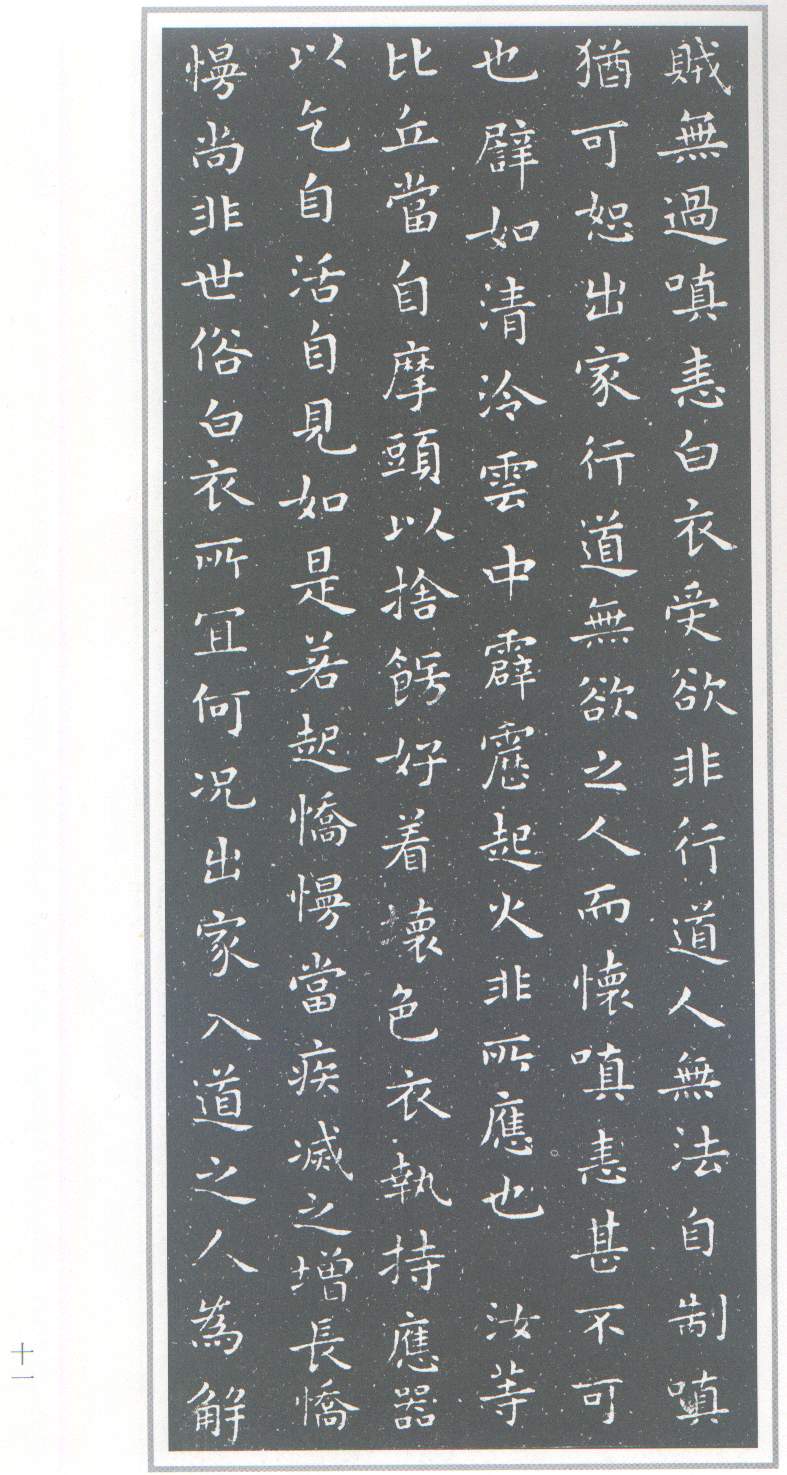 賊無過嗔恚白衣受欲非行道人無法自制嗔
猶可恕出家行道無欲之人而懷嗔恚甚不可
也譬如清冷雲中霹靂起火非所應也 汝等
比丘當自摩頭以捨餝好着壞色衣執持應器
以乞自活自見如是若起憍慢當疾滅之增長憍
慢尚非世俗白衣所宜何况出家入道之人為解
十一